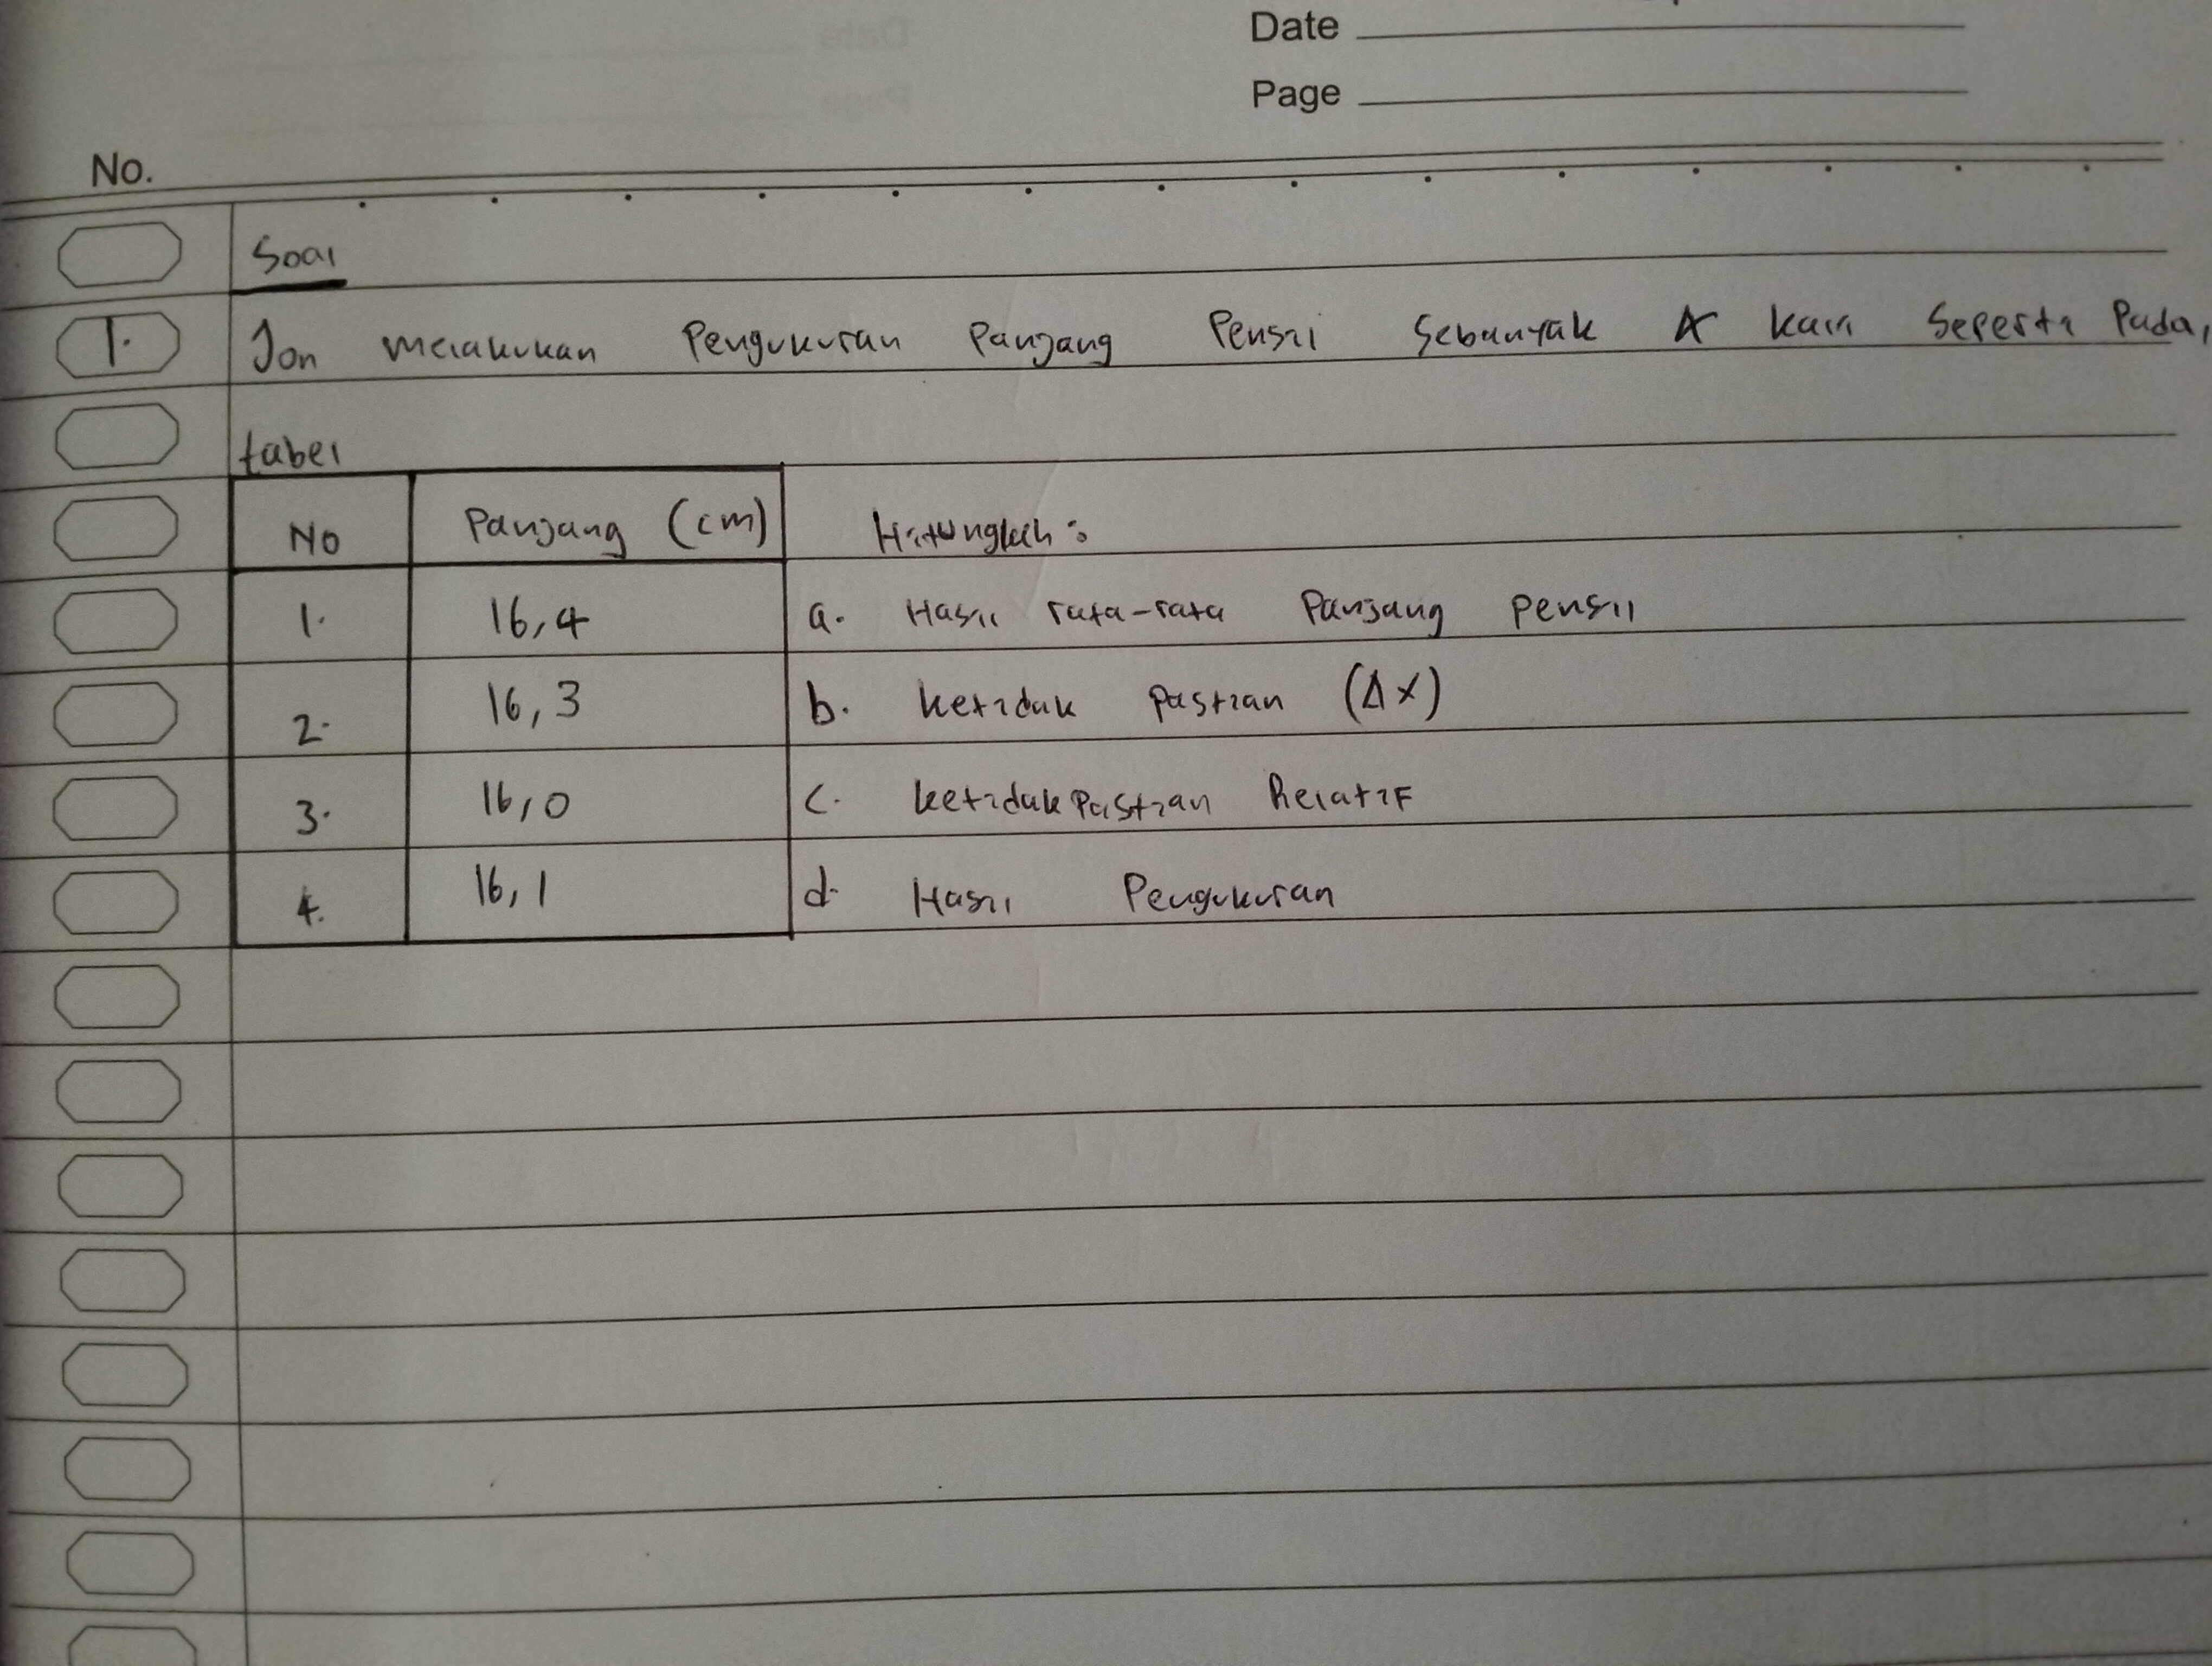 Date
Page
No.
Soal
1. Jon melakukan Pengukuran Panjang Pensil Sebanyak 4 kali Seperti Pada,
tabel
No Panjang (cm) Hitunglah :
1. 16,4 a. Hasil rata-rata Panjang pensil
2. 16,3 b. ketidak pastian (Δx)
3. 16,0 c. ketidakpastian Relatif
4. 16,1 d. Hasil Pengukuran